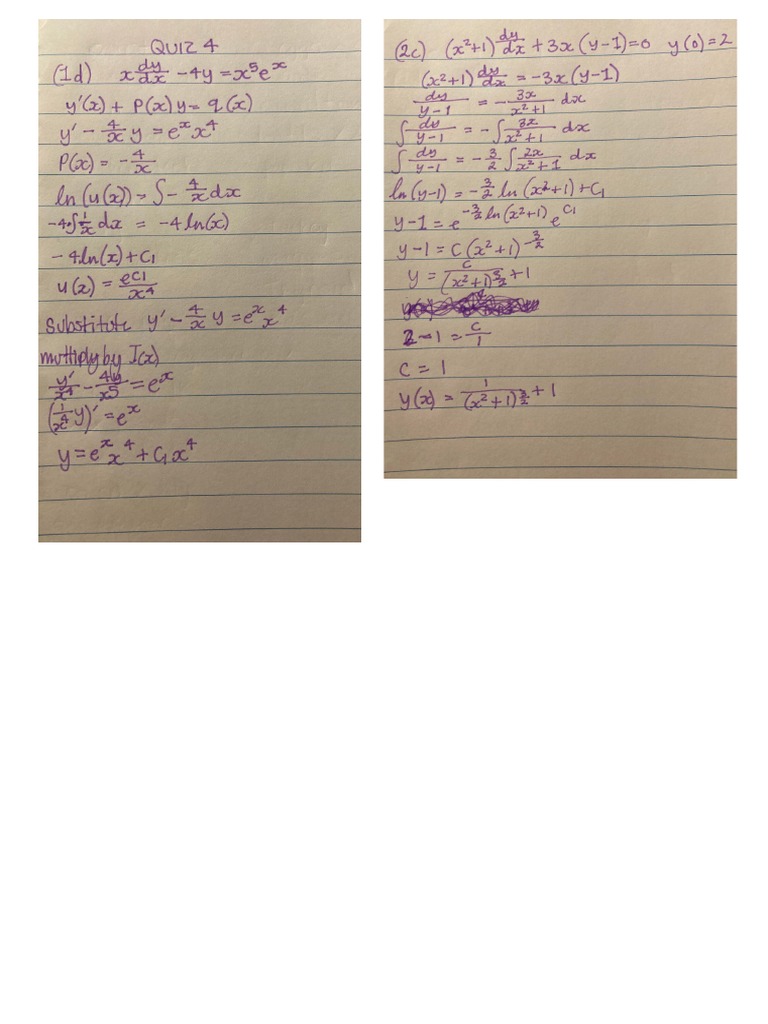 QUIZ 4
(1d) x dy/dx - 4y = x⁵eˣ
y'(x) + P(x)y = q(x)
y' - 4/x y = eˣx⁴
P(x) = - 4/x
ln(u(x)) = ∫ - 4/x dx
-4·∫ 1/x dx = -4 ln(x)
- 4ln(x) + C₁
u(x) = e^C1/x⁴
Substitute y' - 4/x y = eˣx⁴
multiply by I(x)
y'/x⁴ - 4y/x5 = eˣ
(1/x⁴ y)' = eˣ
y = eˣx⁴ + C₁x⁴
(2c) (x²+1) dy/dx + 3x(y-1)=0 y(0)=2
(x²+1) dy/dx = -3x(y-1)
dy/y-1 = - 3x/x²+1 dx
∫ dy/y-1 = -∫ 3x/x²+1 dx
∫ dy/y-1 = - 3/2 ∫ 2x/x²+1 dx
ln(y-1) = - 3/2 ln(x²+1) + C₁
y-1 = e^(-3/2 ln(x²+1)) e^C₁
y-1 = C(x²+1)^(-3/2)
y = C/(x²+1)^(3/2) + 1
2-1 = C/1
C = 1
y(x) = 1/(x²+1)^(3/2) + 1